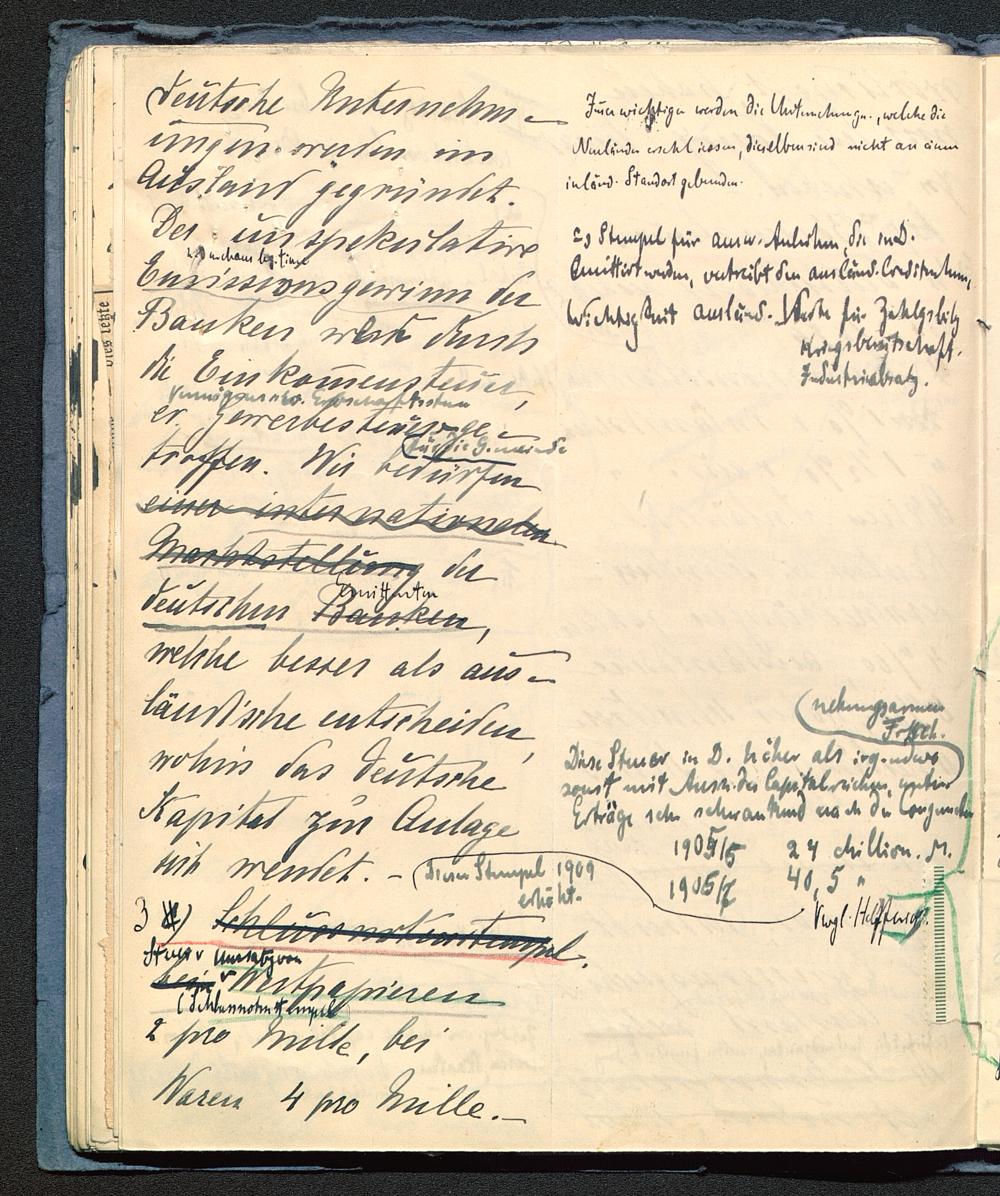 deutsche Unternehm-
ungen werden im
Ausland gegründet.
Der unspekulative
durchaus legitime
Emissionsgewinn der
Banken wird durch
die Einkommensteuer,
er. Gewerbesteuer ge-
troffen. Wir bedürfen
einer internationalen
Marktstellung der
Emittenten
deutschen Banken,
welche besser als aus-
ländische entscheiden,
wohin das deutsche
Kapital zur Anlage
sich wendet. -
(Dieser Stempel 1909
erhöht.
3) Schlussnotenstempel.
Steuer v. Umsatz von
beim Wertpapieren
(Schlussnotenstempel)
2 pro Mille, bei
Waren 4 pro Mille.-
wichtiger werden die Unternehmungen, welche die
Neuländer erschliessen, dieselben sind nicht an einen
inländ. Standort gebunden.
2) Stempel für ausw. Anleihen, die in D.
Emittirt werden, vertreibt den ausländ.
Wichtigkeit ausländ. Werte für Zahlgsbilz
Kriegsbereitschaft.
Industrieabsatz.
Diese Steuer in D. höher als irgendwo
sonst mit
Erträge sehr schwankend nach der Conjunctur
1905/5 24 Million. M.
1905/6 40,5 "
Vergl. Helfferich.